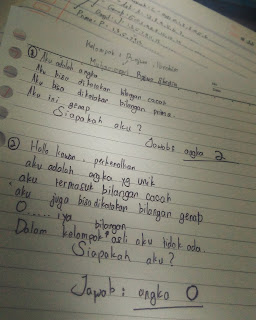 Kelompok : Bangun
① Aku adalah angka
Aku bisa dikatakan bilangan cacah
Aku bisa dikatakan bilangan prima
Aku ini genap
Siapakah aku ?
Jawab: angka 2
② Hallo kawan .. perkenalkan
aku adalah angka yg unik
aku termasuk bilangan cacah
aku juga bisa dikatakan bilangan genap
O...... iya
Dalam kelompok bilangan asli aku tidak ada..
Siapakah aku ?
Jawab : angka 0